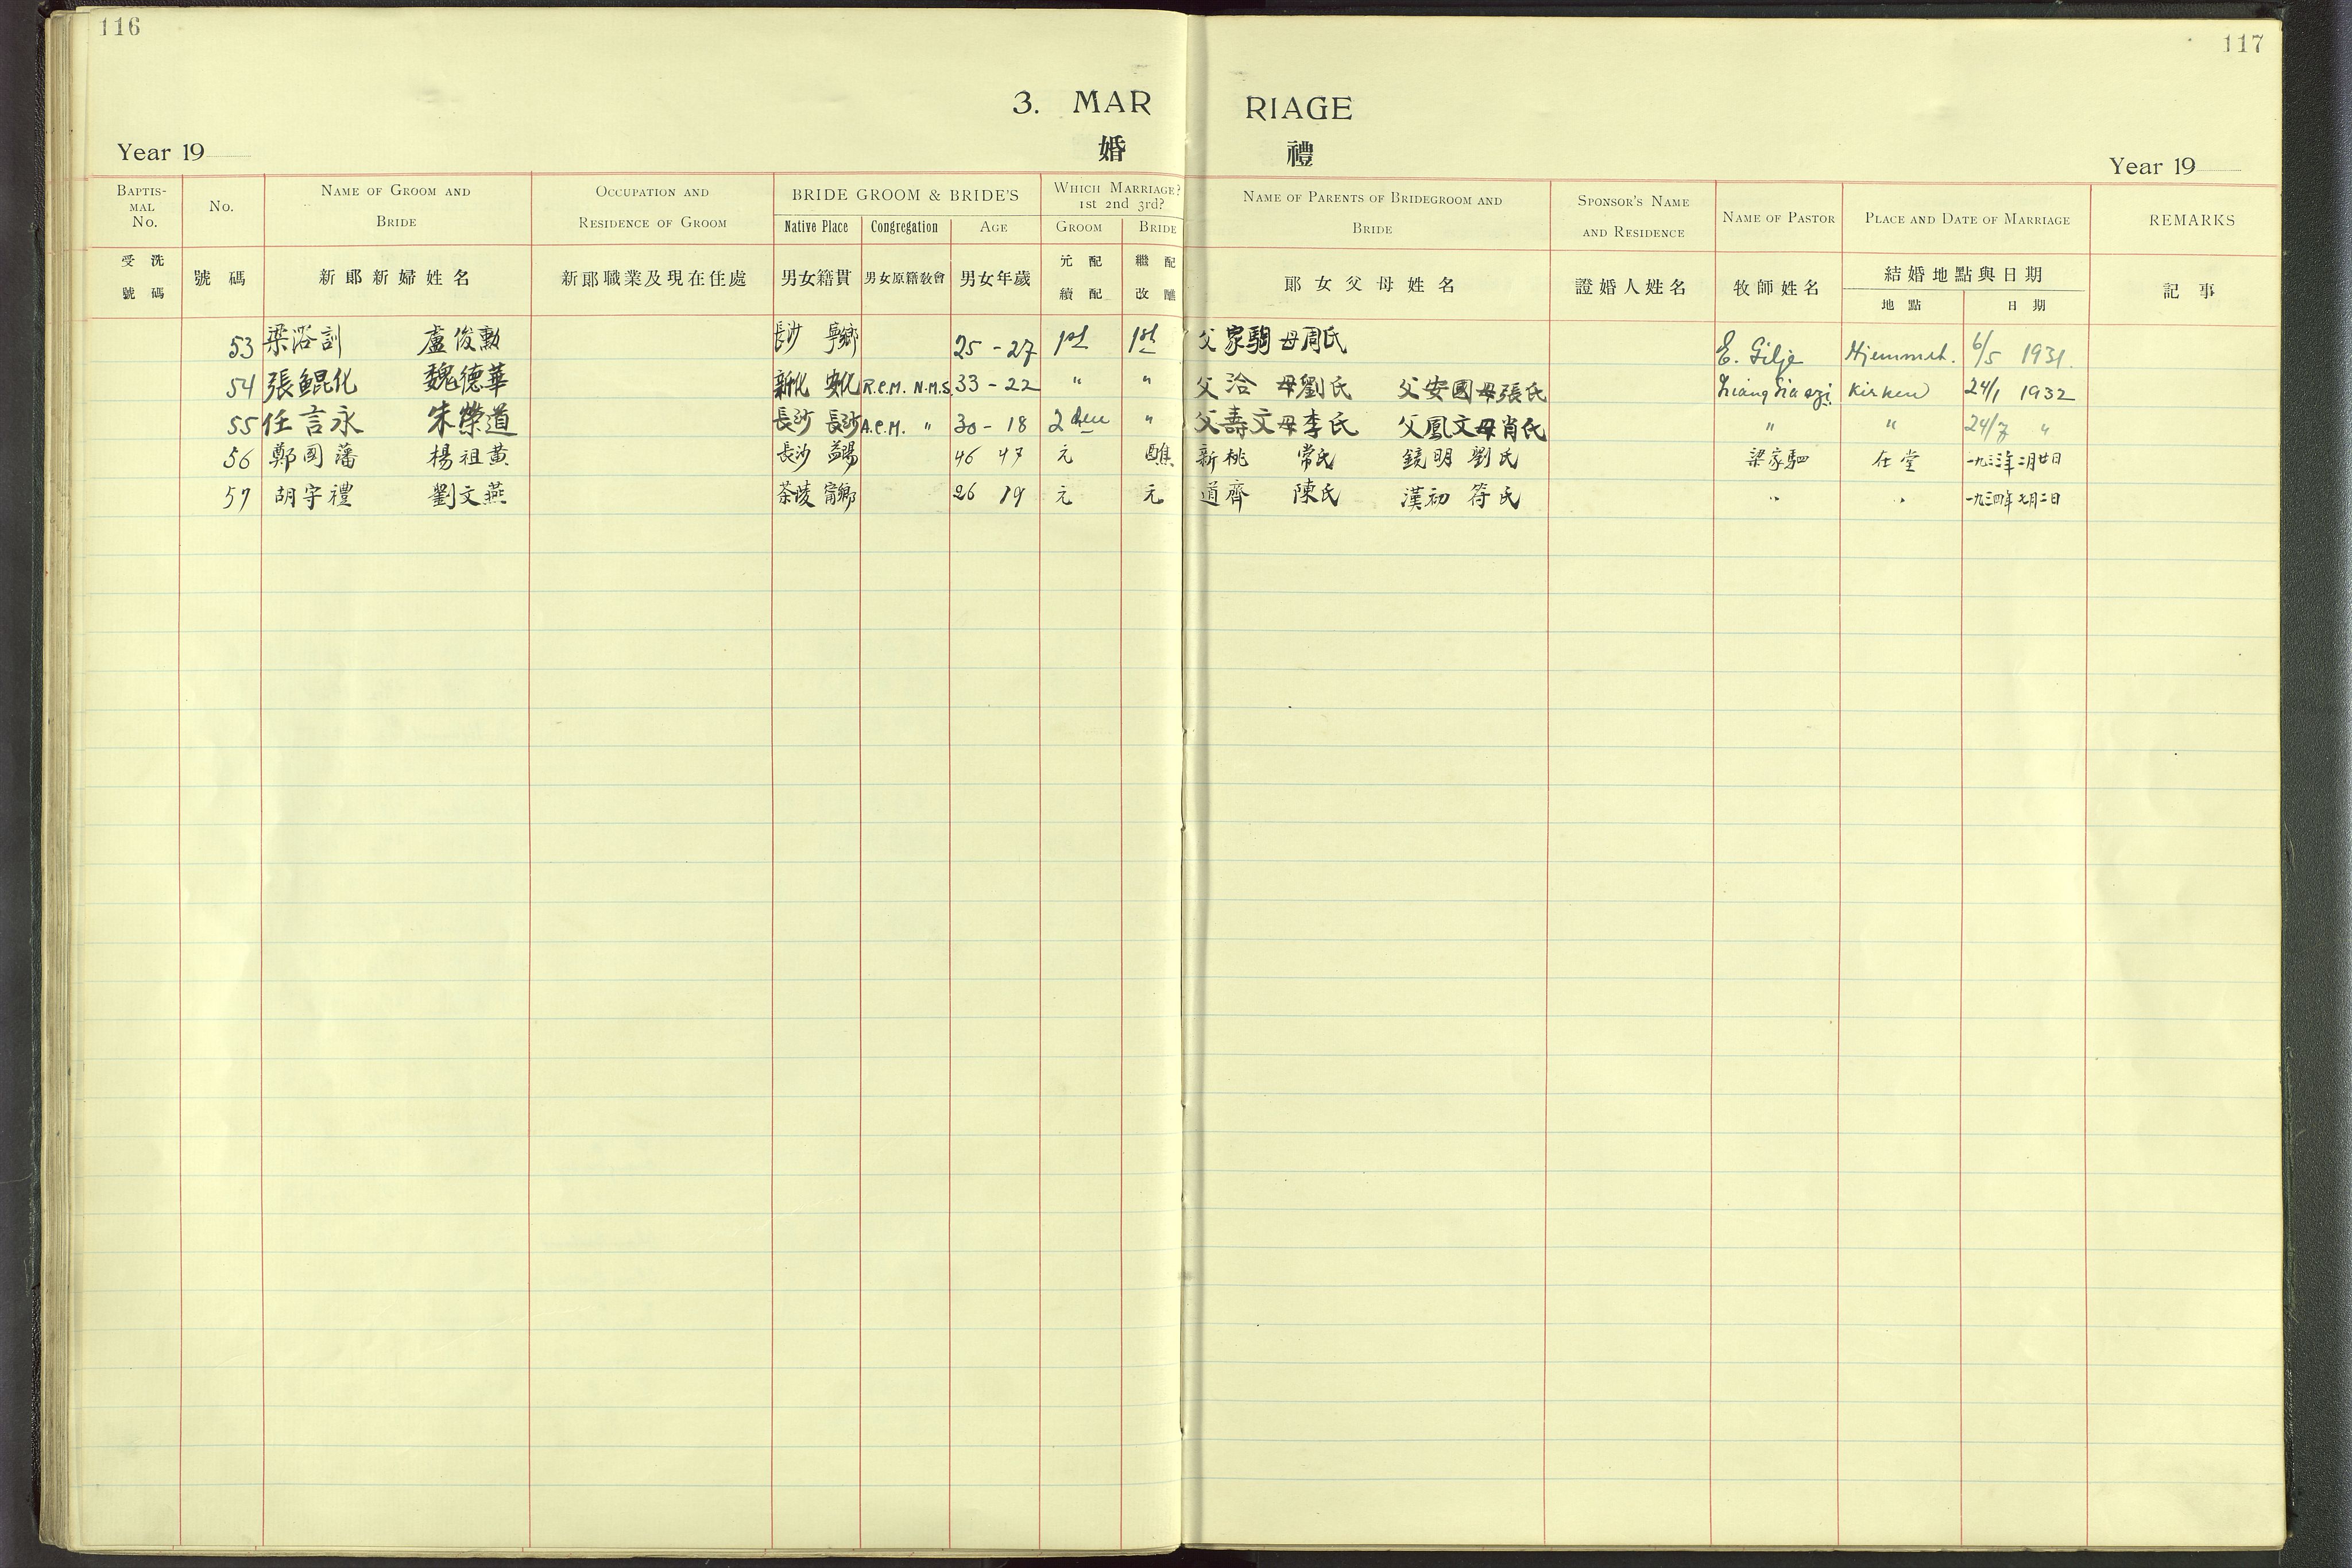 116
117
3. MAR RIAGE
婚 禮
Year 19
Year 19
BAPTISMAL No. No. NAME OF GROOM AND BRIDE OCCUPATION AND RESIDENCE OF GROOM BRIDE GROOM & BRIDE'S WHICH MARRIAGE? 1st 2nd 3rd? NAME OF PARENTS OF BRIDEGROOM AND BRIDE SPONSOR'S NAME AND RESIDENCE NAME OF PASTOR PLACE AND DATE OF MARRIAGE REMARKS
Native Place Congregation AGE GROOM BRIDE
受洗號碼 號碼 新郎新婦姓名 新郎職業及現在住處 男女籍貫 男女原籍敎會 男女年歲 元配續配 繼配改醮 郎女父母姓名 證婚人姓名 牧師姓名 結婚地點與日期 記事
地點 日期
53 梁浴訓 盧俊勲 長沙 寧鄉 25 - 27 1st 1st 父家駒 母周氏 E. Gilje Hjemmet. 6/5 1931.
54 張鯤化 魏德華 新化 安化 R.C.M. N.M.S. 33 - 22 " " 父洽 母劉氏 父安國母張氏 Kirken 24/1 1932
55 任言永 朱榮道 長沙 長沙 A.C.M. " 30 - 18 2den " 父壽文母李氏 父鳳文母肖氏 " " 24/7 "
56 鄭國藩 楊祖黄 長沙 益陽 46 47 元 醮 新桃 常氏 鏡明 劉氏 梁家駟 在堂 一九三三年二月廿日
57 胡守禮 劉文燕 茶陵 甯鄉 26 19 元 元 道齊 陳氏 漢初 符氏 " " 一九三四年七月二日